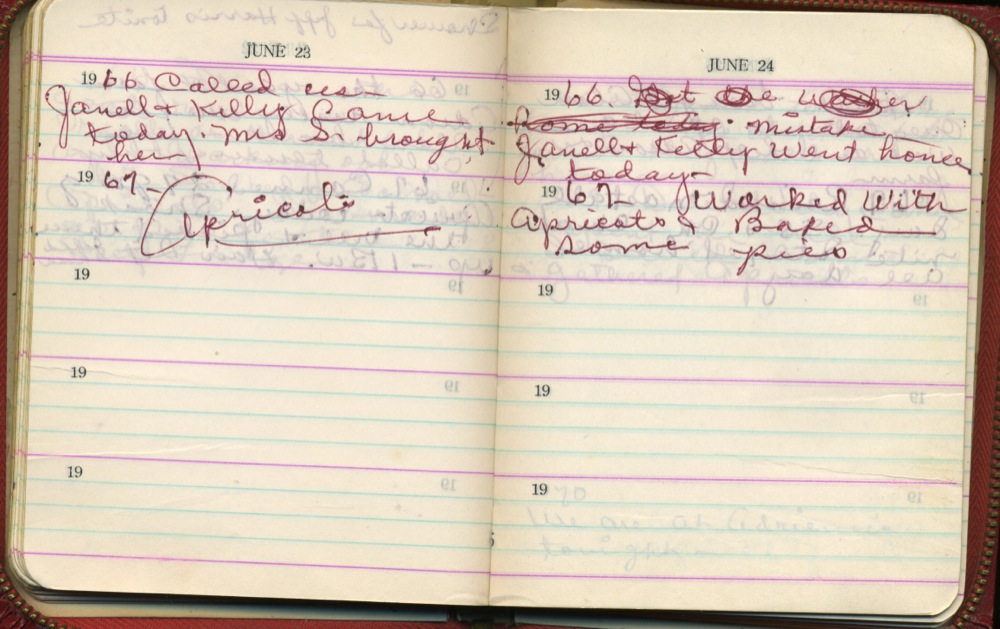 JUNE 23
1966 Called us
Janell & Kelly Came
today. Mrs S. brought
her)
1967 -
Apricots
19
19
19
JUNE 24
1966. Got the washer
home today. mistake
Janell & Kelly Went home
today -
1967 Worked With
Apricots & Baked
some pies
19
19
19